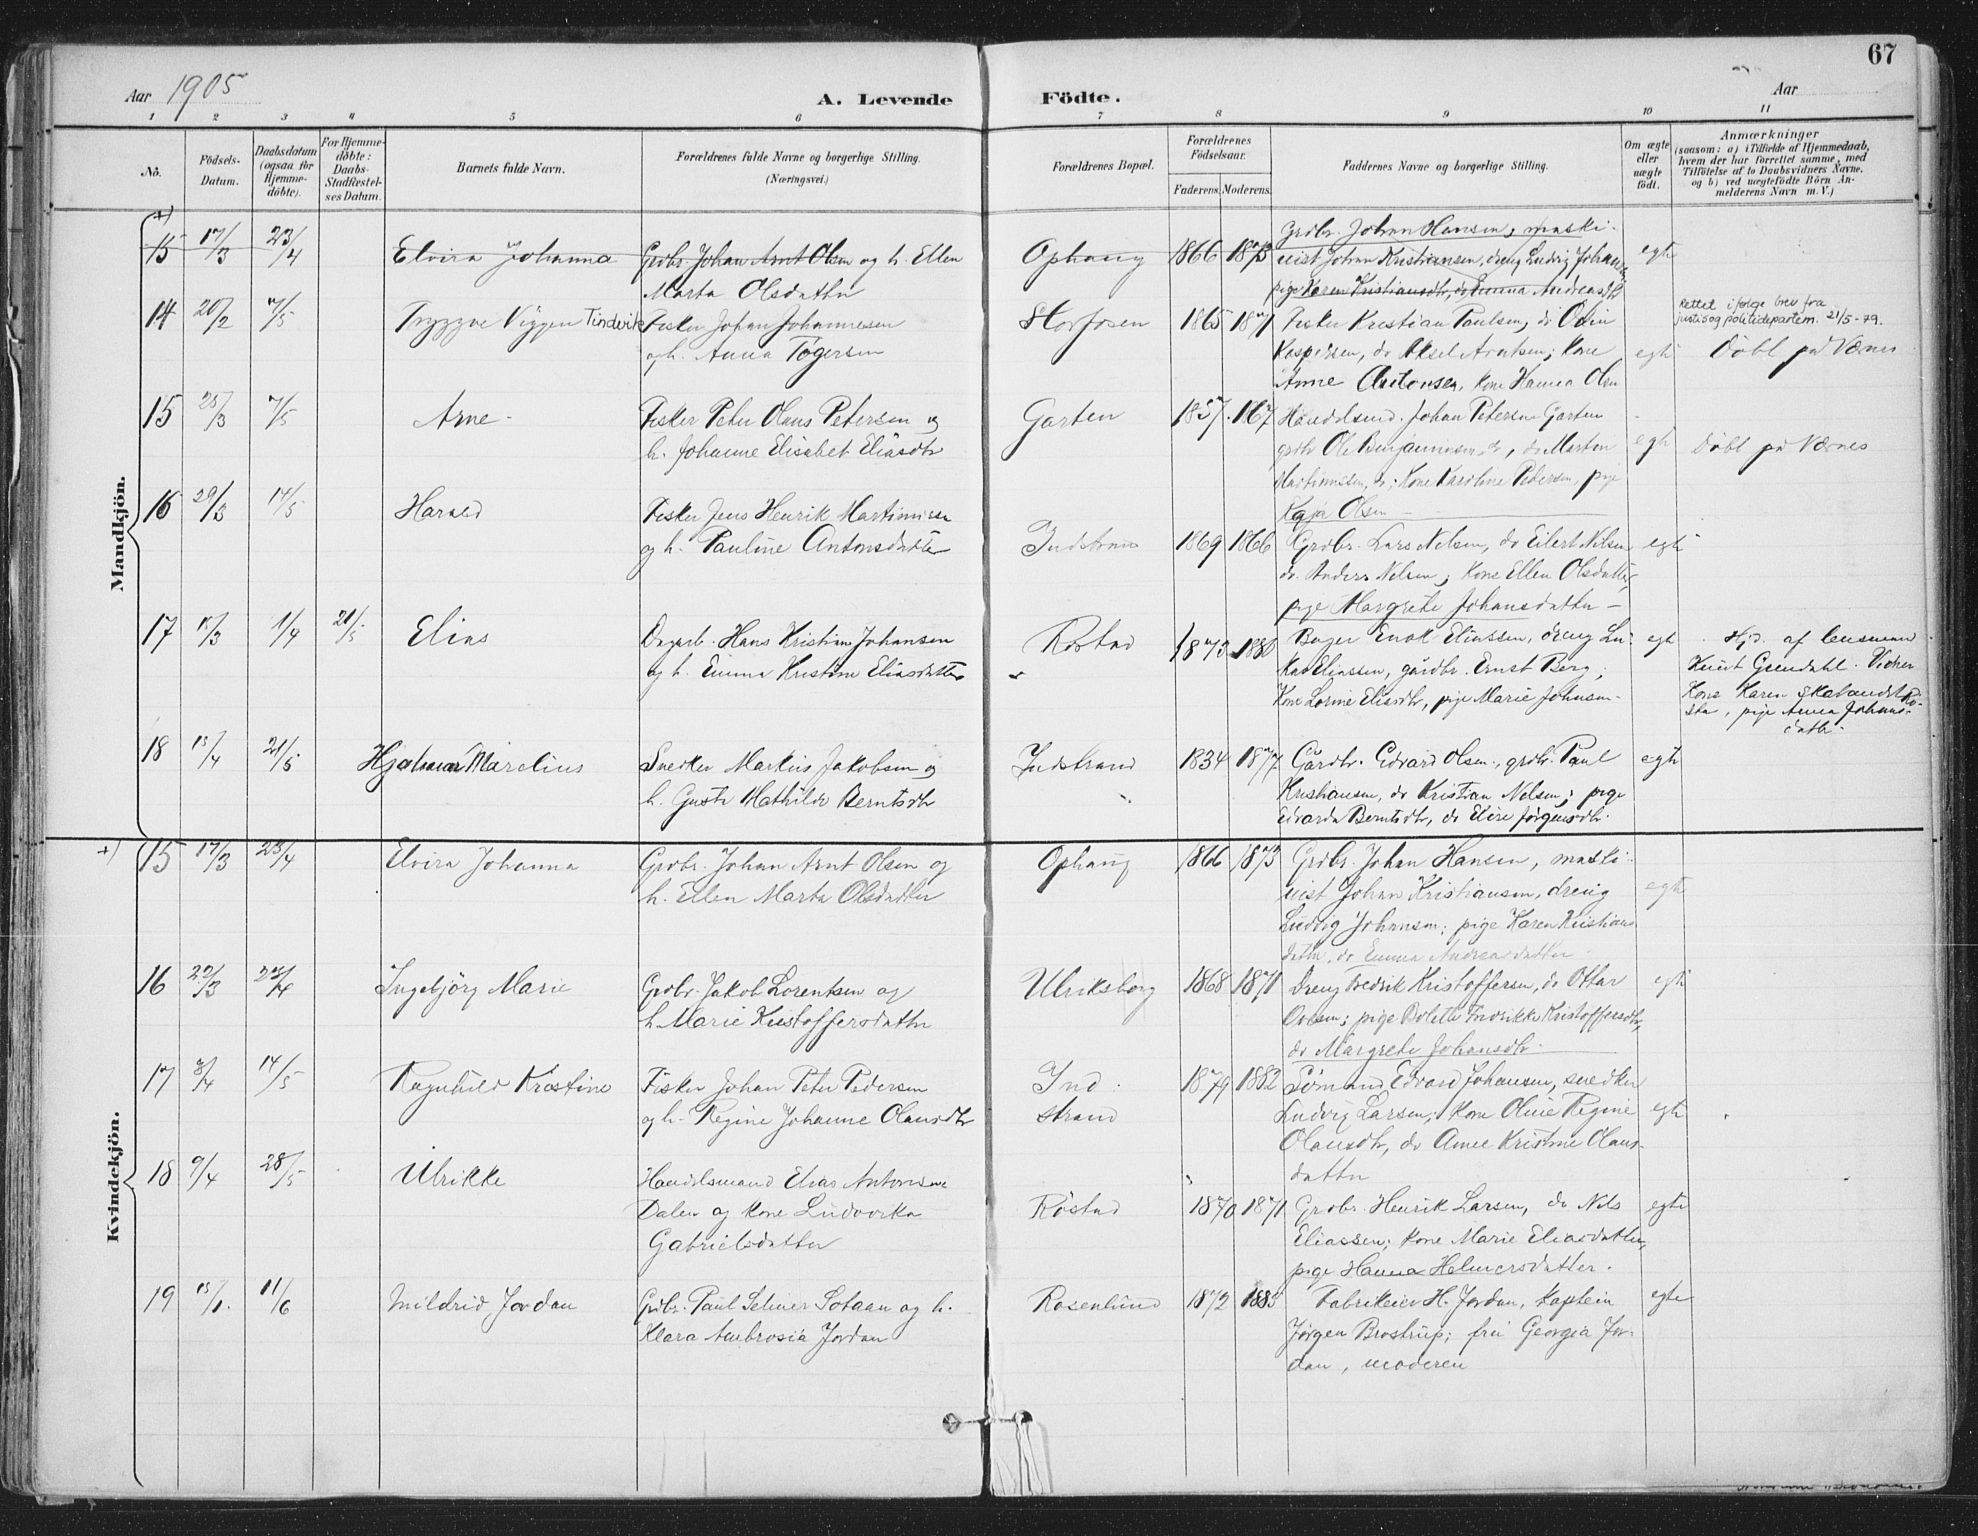 67
Aar 1905
A. Levende
Födte.
Aar
1 2 3 4 5 6 7 8 9 10 11
No.
Födsels-
Datum.
Daabsdatum
(ogsaa for
Hjemme-
döbte).
For Hjemme-
döbte:
Daabs-
Stadfæstel-
ses Datum.
Barnets fulde Navn.
Forældrenes fulde Navne og borgerlige Stilling.
(Næringsvei.)
Forældrenes Bopæl.
Forældrenes
Födselsaar.
Faderens. Moderens.
Faddernes Navne og borgerlige Stilling.
Om ægte
eller
uægte
födt.
Anmærkninger
(saasom: a) i Tilfælde af Hjemmedaab,
hvem der har forrettet samme, med
Tilföielse af to Daabsvidners Navne,
og b) ved uægtefödte Börn An-
melderens Navn m. V.)
Mandkjön.
+)
15 17/3 23/4 Elvira Johanna Grdbr. Johan Arnt Olsen og h. Ellen
Marta Olsdatter
Ophaug 1866 1873 Grdbr. Johan Hansen, maski-
nist Johan Kristiansen, dreng Ludvig Johansen
pige Karen Kristiansdtr, do Emma Andreasdtr
egte
14 20/2 7/5 Tryggve Viggen Tindvik Fisker Johan Johannesen
og h. Anna Togersen
Storfosen 1865 1871 Fisker Kristian Paulsen, do Odin
Kaspersen, do Aksel Arntsen; kone
Anne Antonsen, kone Hanna Olsn
egte
Rettet i følge brev fra
justis og politidepartem. 21/5-79.
Döbt på Værnes
15 25/3 7/5 Arne - Fisker Peter Olaus Petersen og
h. Johanne Elisabet Eliasdtr
Garten 1857. 1867 Handelsmd. Johan Petersen Garten
grdbr Ole Benjaminsen, do Morten
Martinussen, do; Kone Karoline Pedersen, pige
Kaja Olsen
egte
Döbt på Værnes
16 29/3 14/5 Harald Fisker Jens Henrik Martinusen
og h. Pauline Antonsdatter
Indstrand 1869 1866 Grdbr. Lars Nelsen, do Eilert Nilsen
do. Anders Nelsen; kone Ellen Olsdatter,
pige Margrete Johansdatter -
egte
17 15/3 1/4 21/5 Elias Dagarb. Hans Kristian Johansen
og h. Emma Kristine Eliasdatter
Röstad 1873 1880 Enok Eliassen, dreng Lu-
kas Eliassen, gårdbr. Ernst Berg;
Kone Lorine Eliasdtr, pige Marie Johnsen-
egte
Hjd. af lensmand
Knut Grendahl. Vidner
Kone Karen
pige Anna Johans-
datter.
18 15/4 21/5 Hjalmar Marelius Snedker Markus Jakobsen og
h. Gusta Mathilde Berntsdtr
Indstrand 1834 1877 Gårdbr. Edvard Olsen, grdbr. Paul
Kristiansen, do Kristian Nelsen; pige
Edvarda Berntsdtr, do Elise Jørgensdtr.
egte
Kvindekjön.
+) 15 17/3 23/4 Elvira Johanna Grdbr. Johan Arnt Olsen og
h. Ellen Marta Olsdatter
Ophaug 1866 1873 Grdbr. Johan Hansen, maski-
nist Johan Kristiansen, dreng
Ludvig Johansen; pige Karen Kristians
datter, do Emma Andreasdatter
egte
16 22/3 24/4 Ingebjörg Marie Grdbr. Jakob Lorentsen og
h. Marie Kristoffersdatter
Ulriksborg 1868 1871 Dreng Fredrik Kristoffersen, do Ottar
Ovesen; pige Bolette Fredrikke Kristoffersdtr,
do Margrete Johansdtr.
egte
17 8/4 14/5 Ragnhild Kristine Fisker Johan Peter Pedersen
og h. Regine Johanne Olausdtr
Ind
strand
1879 1882 Sømand Edvard Johansen, snedker
Ludvig Larsen; kone Oline Regine
Olausdtr, do Anne Kristine Olaus-
datter
egte
18 9/4 28/5 Ulrikke Handelsmand Elias Antonsen
Dalen og kone Ludovika
Gabrielsdatter
Röstad 1870 1871 Grdbr. Henrik Larsen, do Nils
Eliassen; kone Marie Eliasdatter,
pige Hanna Helmersdatter.
egte
19 15/1. 11/6 Mildrid Jordan Grdbr. Paul Selmer Sotaan og h.
Klara Ambrosia Jordan
Rosenlund 1872 1885 Fabrikeier H. Jordan, kaptein
Jørgen Brostrup; frü Georgia Jor-
dan, moderen
egte